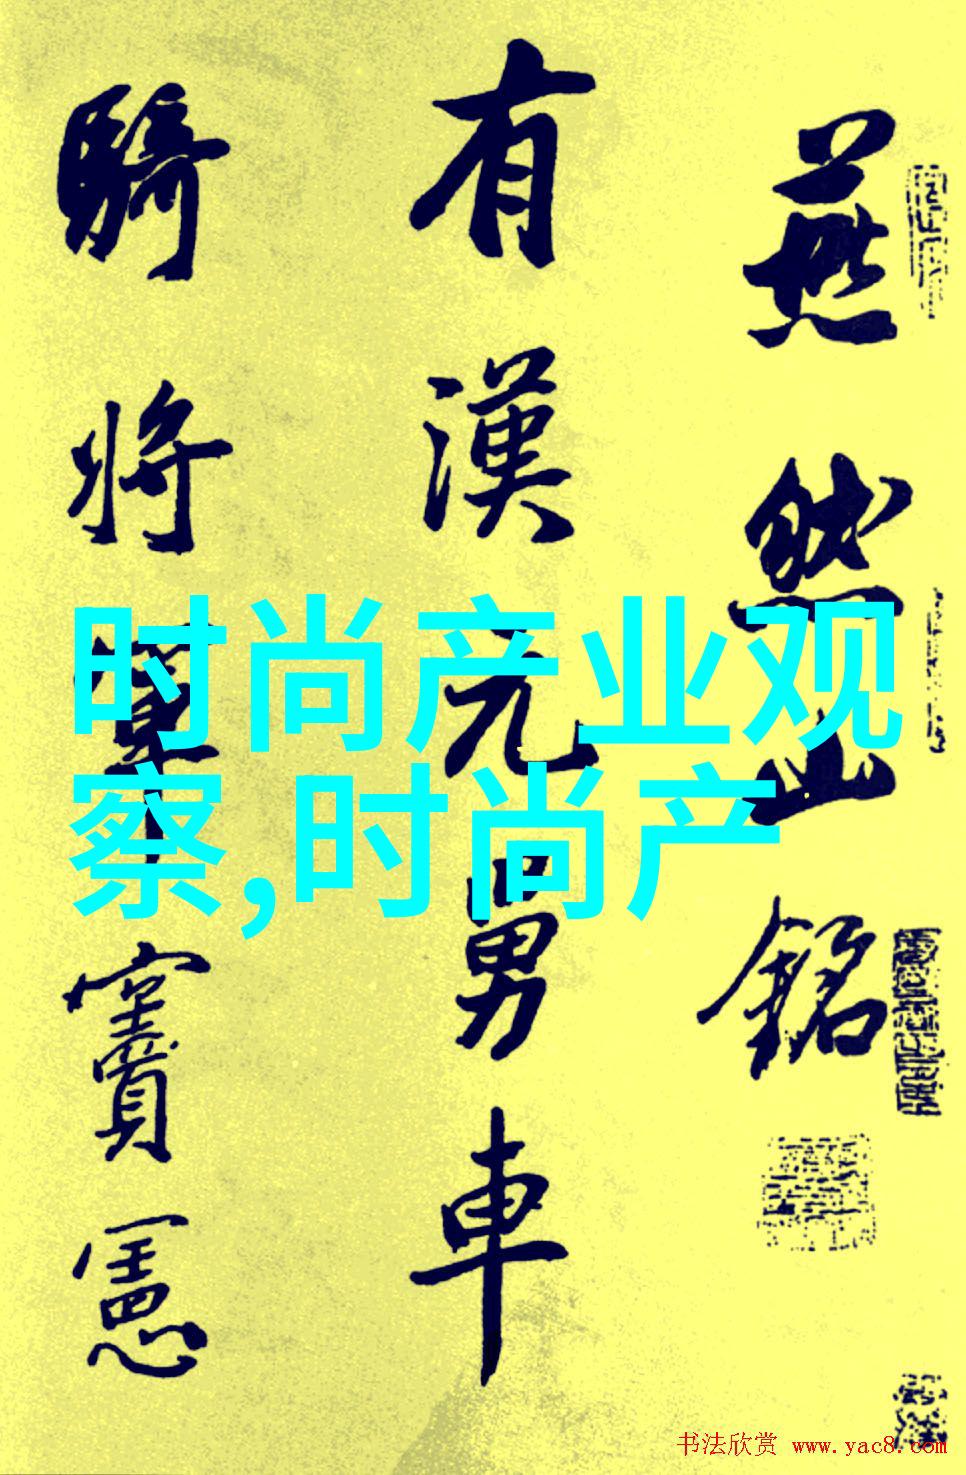 燕然山銘
有漢元舅車
騎將軍竇憲
时尚产业观
察,时尚产
书法欣赏 www.yac8.com